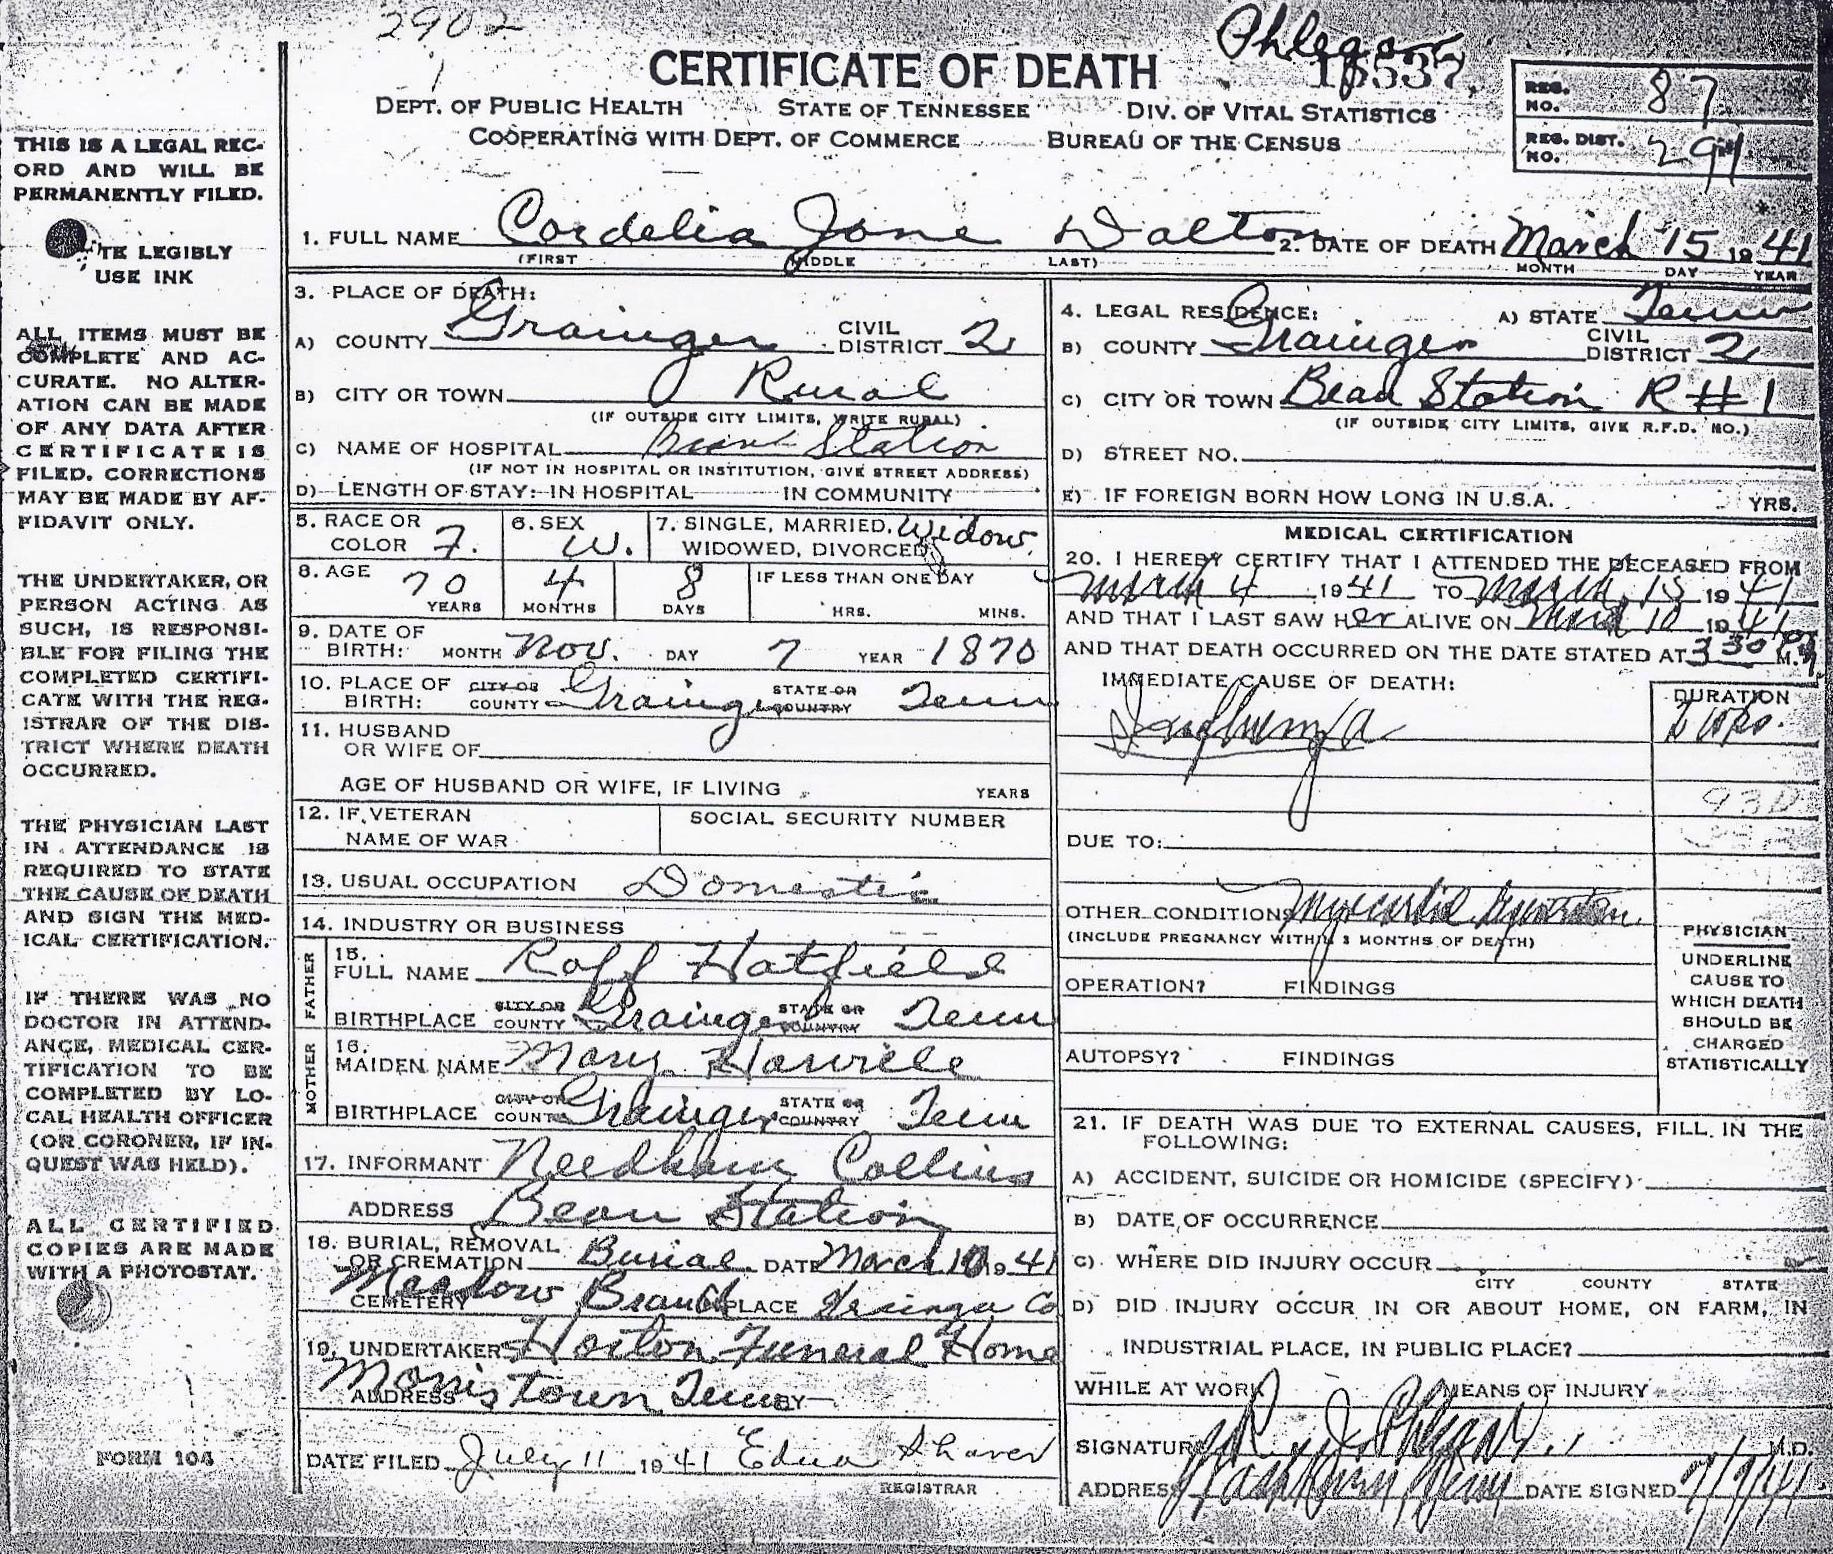 2902
Phlegar
CERTIFICATE OF DEATH
DEPT. OF PUBLIC HEALTH STATE OF TENNESSEE DIV. OF VITAL STATISTICS
COOPERATING WITH DEPT. OF COMMERCE BUREAU OF THE CENSUS
REG. NO. 87
REG. DIST. NO. 291
THIS IS A LEGAL REC-
ORD AND WILL BE
PERMANENTLY FILED.
TE LEGIBLY
USE INK
ALL ITEMS MUST BE
COMPLETE AND AC-
CURATE. NO ALTER-
ATION CAN BE MADE
OF ANY DATA AFTER
CERTIFICATE IS
FILED. CORRECTIONS
MAY BE MADE BY AF-
FIDAVIT ONLY.
THE UNDERTAKER, OR
PERSON ACTING AS
SUCH, IS RESPONSI-
BLE FOR FILING THE
COMPLETED CERTIFI-
CATE WITH THE REG-
ISTRAR OF THE DIS-
TRICT WHERE DEATH
OCCURRED.
THE PHYSICIAN LAST
IN ATTENDANCE IS
REQUIRED TO STATE
THE CAUSE OF DEATH
AND SIGN THE MED-
ICAL CERTIFICATION.
IF THERE WAS NO
DOCTOR IN ATTEND-
ANCE, MEDICAL CER-
TIFICATION TO BE
COMPLETED BY LO-
CAL HEALTH OFFICER
(OR CORONER, IF IN-
QUEST WAS HELD).
ALL CERTIFIED
COPIES ARE MADE
WITH A PHOTOSTAT.
FORM 104
1. FULL NAME Cordelia Jane Dalton 2. DATE OF DEATH March 15 1941
(FIRST MIDDLE LAST) MONTH DAY YEAR
3. PLACE OF DEATH:
A) COUNTY Grainger CIVIL DISTRICT 2
B) CITY OR TOWN Rural
(IF OUTSIDE CITY LIMITS, WRITE RURAL)
C) NAME OF HOSPITAL Bean Station
(IF NOT IN HOSPITAL OR INSTITUTION, GIVE STREET ADDRESS)
D) LENGTH OF STAY: IN HOSPITAL IN COMMUNITY
4. LEGAL RESIDENCE: A) STATE Tenn
B) COUNTY Grainger CIVIL DISTRICT 2
C) CITY OR TOWN Bean Station R #1
(IF OUTSIDE CITY LIMITS, GIVE R.F.D. NO.)
D) STREET NO.
E) IF FOREIGN BORN HOW LONG IN U.S.A. YRS.
5. RACE OR COLOR F. 6. SEX W. 7. SINGLE, MARRIED, WIDOWED, DIVORCED Widow.
8. AGE 70 YEARS 4 MONTHS 8 DAYS IF LESS THAN ONE DAY HRS. MINS.
9. DATE OF BIRTH: MONTH Nov. DAY 7 YEAR 1870
10. PLACE OF BIRTH: CITY OR COUNTY Grainger STATE OR COUNTRY Tenn
11. HUSBAND
OR WIFE OF
AGE OF HUSBAND OR WIFE, IF LIVING YEARS
12. IF VETERAN NAME OF WAR SOCIAL SECURITY NUMBER
13. USUAL OCCUPATION Domestic
14. INDUSTRY OR BUSINESS
FATHER
15. FULL NAME Roff Hatfield
BIRTHPLACE CITY OR COUNTY Grainger STATE OR COUNTRY Tenn
MOTHER
16. MAIDEN NAME Mary Harville
BIRTHPLACE CITY OR COUNTY Grainger STATE OR COUNTRY Tenn
17. INFORMANT Needham Collins
ADDRESS Bean Station
18. BURIAL, REMOVAL OR CREMATION Burial DATE March 1941
CEMETERY Meadow Branch PLACE Grainger Co
19. UNDERTAKER Horton Funeral Home
ADDRESS Morristown Tenn BY
DATE FILED July 11 1941 Edna Shaver
REGISTRAR
MEDICAL CERTIFICATION
20. I HEREBY CERTIFY THAT I ATTENDED THE DECEASED FROM
March 4 1941 TO March 15 1941
AND THAT I LAST SAW HER ALIVE ON March 10 1941
AND THAT DEATH OCCURRED ON THE DATE STATED AT 3 30 P M.
IMMEDIATE CAUSE OF DEATH: DURATION
Influenza 2 wks.
93D
DUE TO:
OTHER CONDITIONS Myocardial
(INCLUDE PREGNANCY WITHIN 3 MONTHS OF DEATH)
OPERATION? FINDINGS
AUTOPSY? FINDINGS
PHYSICIAN
UNDERLINE
CAUSE TO
WHICH DEATH
SHOULD BE
CHARGED
STATISTICALLY
21. IF DEATH WAS DUE TO EXTERNAL CAUSES, FILL IN THE
FOLLOWING:
A) ACCIDENT, SUICIDE OR HOMICIDE (SPECIFY)
B) DATE OF OCCURRENCE
C) WHERE DID INJURY OCCUR
CITY COUNTY STATE
D) DID INJURY OCCUR IN OR ABOUT HOME, ON FARM, IN
INDUSTRIAL PLACE, IN PUBLIC PLACE?
WHILE AT WORK MEANS OF INJURY
SIGNATURE M.D.
ADDRESS Washburn Tenn DATE SIGNED 7/7/41